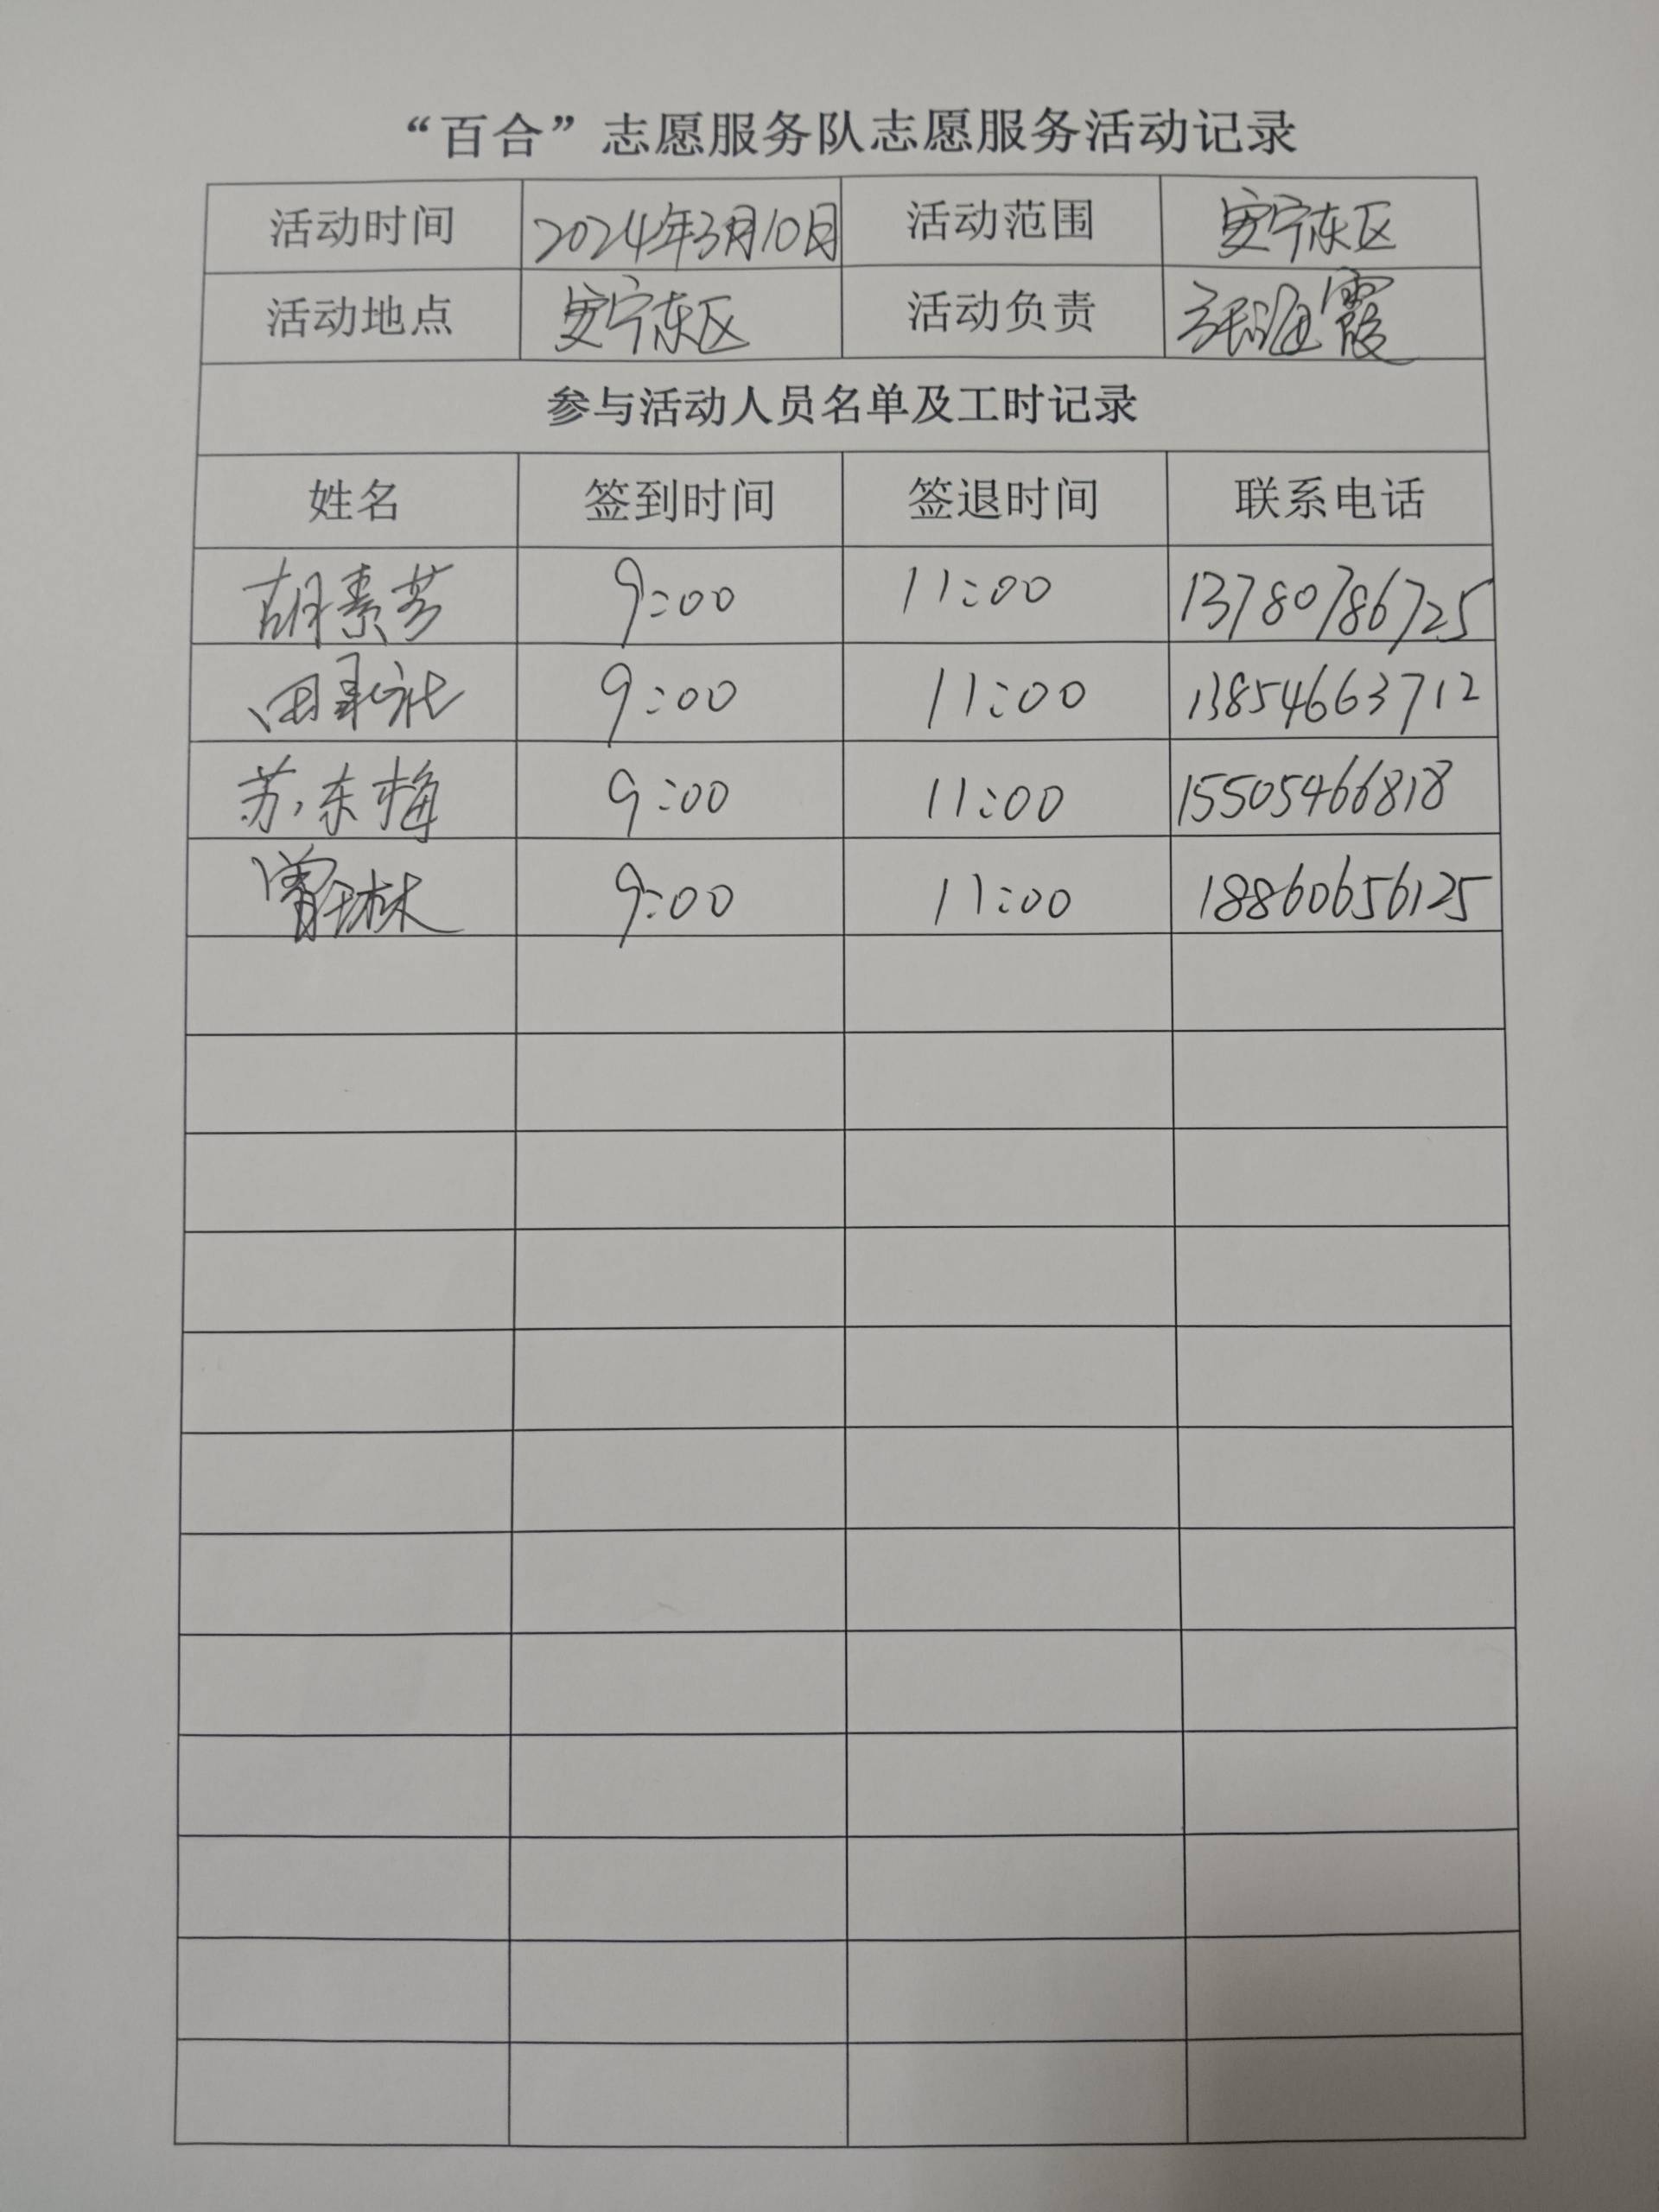 “百合”志愿服务队志愿服务活动记录
活动时间 2024年3月10日 活动范围 安宁东区
活动地点 安宁东区 活动负责 张海霞
参与活动人员名单及工时记录
姓名 签到时间 签退时间 联系电话
胡素芳 9:00 11:00 13780786725
9:00 11:00 13854663712
苏东梅 9:00 11:00 15505466818
曾琳 9:00 11:00 18860656125